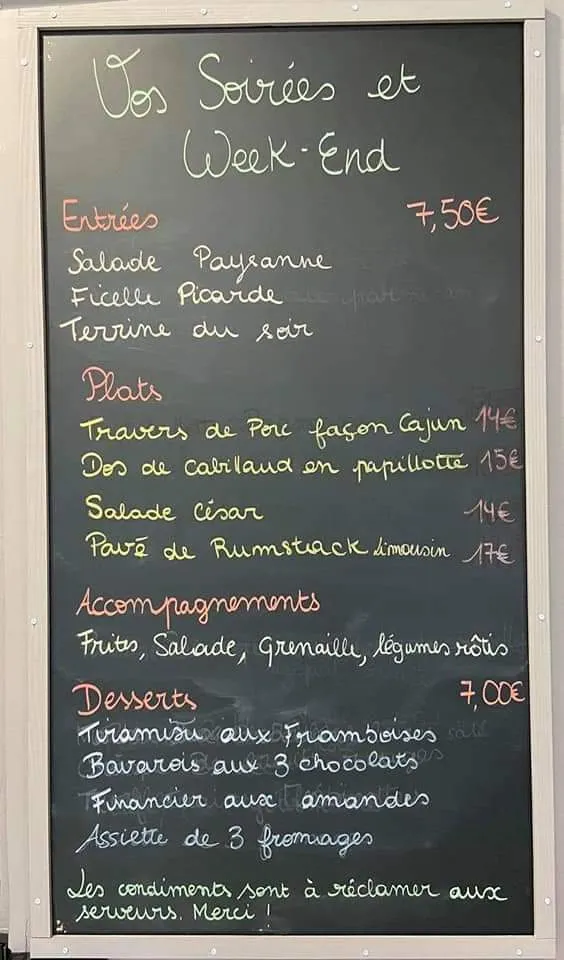 Vos Soirées et
Week-End
Entrées 7,50€
Salade Paysanne
Ficelle Picarde
Terrine du soir
Plats
Travers de Porc façon Cajun 14€
Dos de cabillaud en papillotte 15€
Salade César 14€
Pavé de Rumsteack Limousin 17€
Accompagnements
Frites, Salade, Grenaille, légumes rôtis
Desserts 7,00€
Tiramisu aux Framboises
Bavarois aux 3 chocolats
Financier aux amandes
Assiette de 3 fromages
Les condiments sont à réclamer aux
serveurs. Merci !